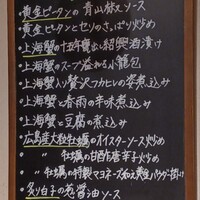 ・黄金ピータンの青山椒ソース
・黄金ピータンとセリのさっぱり炒め
・上海蟹の十五年甕出し紹興酒漬け
・上海蟹のスープ溢れる小籠包
・上海蟹入り贅沢フカヒレの姿煮込み
・上海蟹と春雨の辛味煮込み
・上海蟹と豆腐の煮込み
・広島産大粒牡蠣のオイスターソース炒め
・〃 牡蠣の甘酢唐辛子炒め
・〃 牡蠣の特製マヨネーズ和え黄金パウダー掛け
・炙り白子の葱醤油ソース